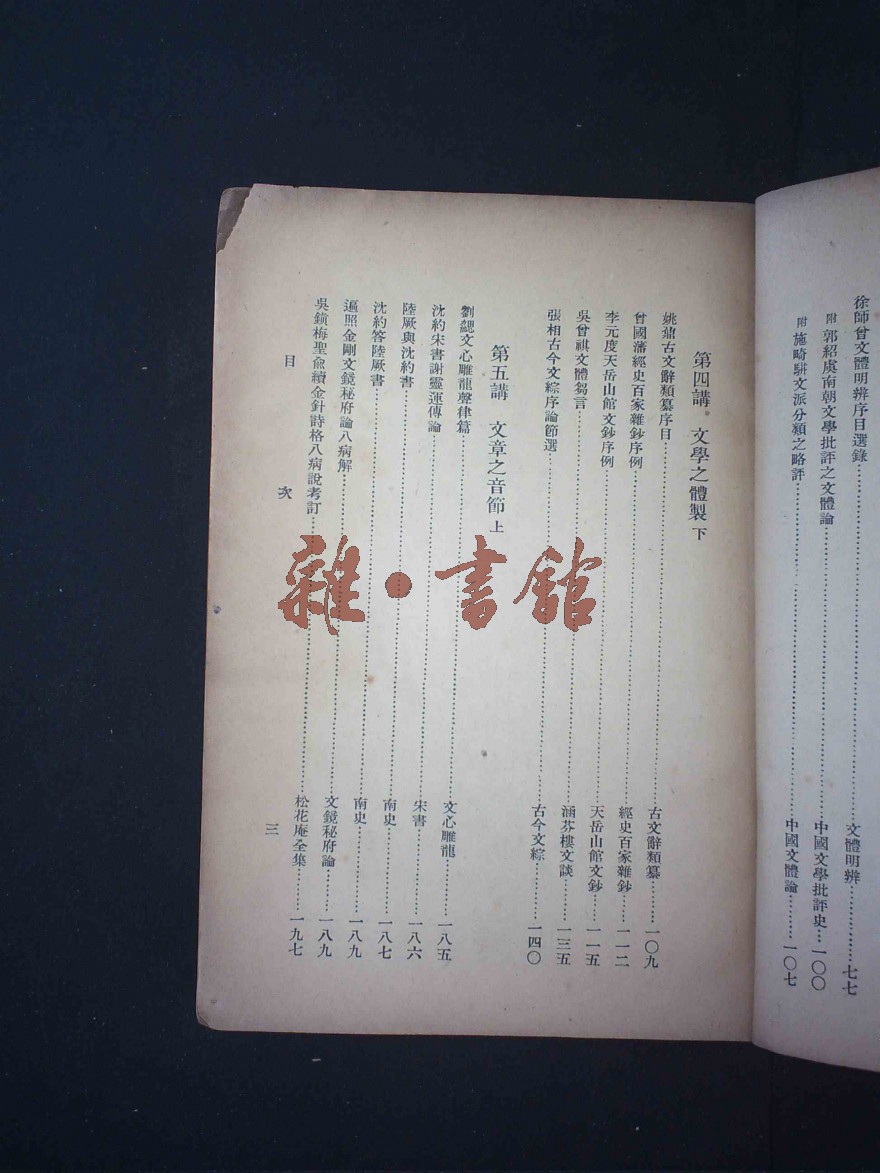 徐師曾文體明辨序目選錄 文體明辨……七七
附 郭紹虞南朝文學批評之文體論……中國文學批評史……一〇〇
附 施畸駢文派分類之略評……中國文體論……一〇七
第四講 文學之體製 下
姚鼐古文辭類纂序目……古文辭類纂……一〇九
曾國藩經史百家雜鈔序例……經史百家雜鈔……一一二
李元度天岳山館文鈔序例……天岳山館文鈔……一一五
吳曾祺文體芻言……涵芬樓文談……一三五
張相古今文綜序論節選……古今文綜……一四〇
第五講 文章之音節 上
劉勰文心雕龍聲律篇……文心雕龍……一八五
沈約宋書謝靈運傳論……宋書……一八六
陸厥與沈約書……南史……一八七
沈約答陸厥書……南史……一八九
遍照金剛文鏡秘府論八病解……文鏡秘府論……一八九
吳鎮梅聖俞續金針詩格八病說考訂……松花庵全集……一九七
目次 三
雜·書館